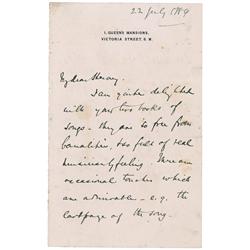 22 July 1889
1, QUEENS MANSIONS,
VICTORIA STREET, S.W.
My dear Hervey.
I am quite delighted
with your two books of
songs - they are so free from
banalities, &
 so full of real
musicianly feeling. There are
occasional touches which
are admirable - e.g. the
last page of the song.